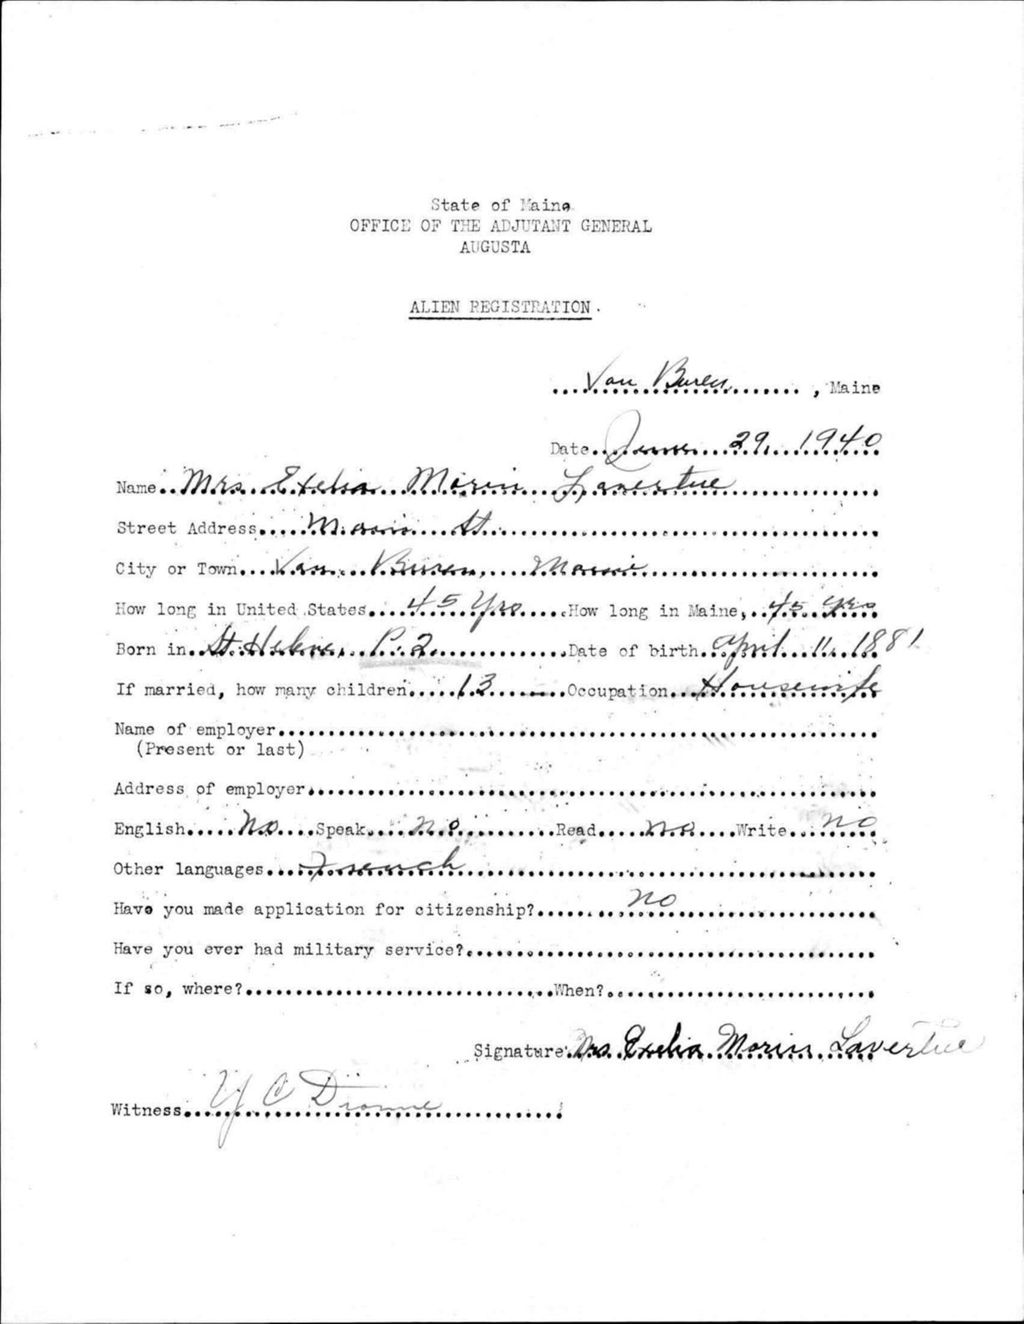 State of Maine
OFFICE OF THE ADJUTANT GENERAL
AUGUSTA
ALIEN REGISTRATION.
Van Buren, Maine
Date June 29, 1940
Name Mrs. Exelia Morin Lavertue
Street Address Main St.
City or Town Van Buren, Maine
How long in United States 45 Yrs How long in Maine, 45 Yrs
Born in St. Helene, P.2 Date of birth April 11, 1881
If married, how many children 13 Occupation Housewife
Name of employer
(Present or last)
Address of employer
English No Speak no Read no Write no
Other languages French
Have you made application for citizenship? no
Have you ever had military service?
If so, where? When?
Signature Mrs. Exelia Morin Lavertue
Witness Y C Dionne